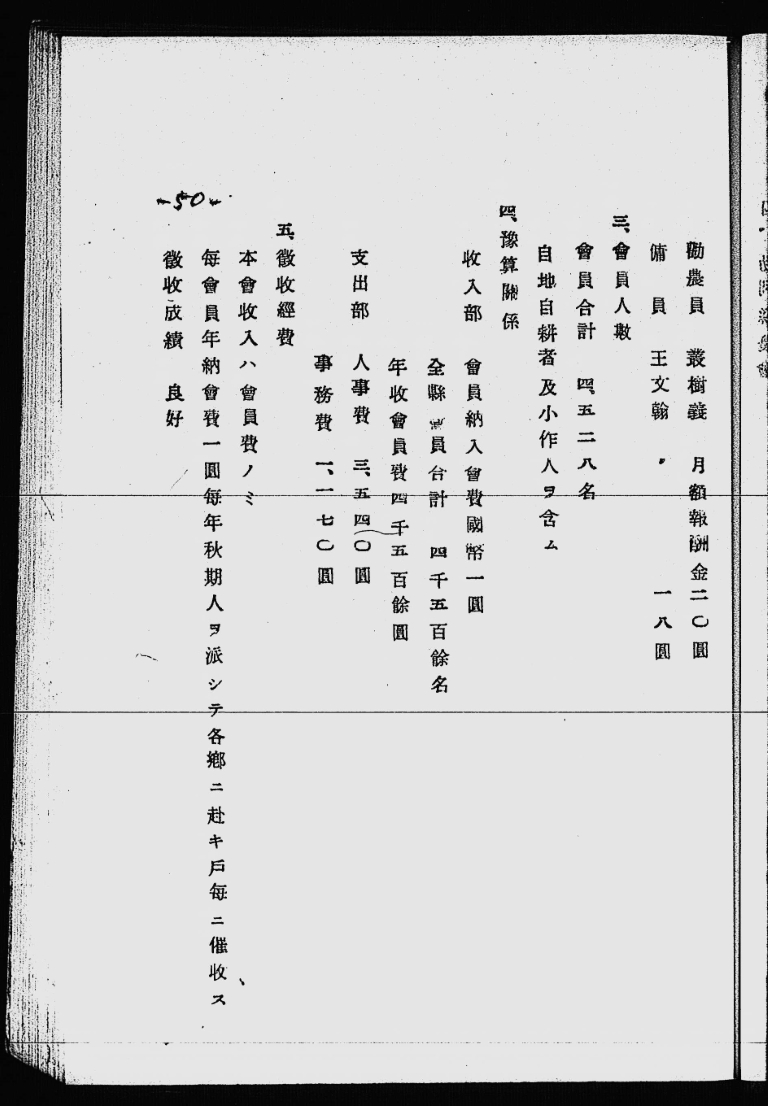 勸農員　叢樹義　月額報酬金二〇圓
傭　員　王文翰　〃　一八圓
三、會員人數
會員合計　四、五二八名
自地自耕者及小作人ヲ含ム
四、豫算關係
收入部　會員納入會費國幣一圓
全縣會員合計　四千五百餘名
年收會員費四千五百餘圓
支出部　人事費　三、五四〇圓
事務費　一、一七〇圓
五、徵收經費
本會收入ハ會員費ノミ
每會員年納會費一圓每年秋期人ヲ派シテ各鄉ニ赴キ戶每ニ催收ス、
徵收成績　良好
-50-